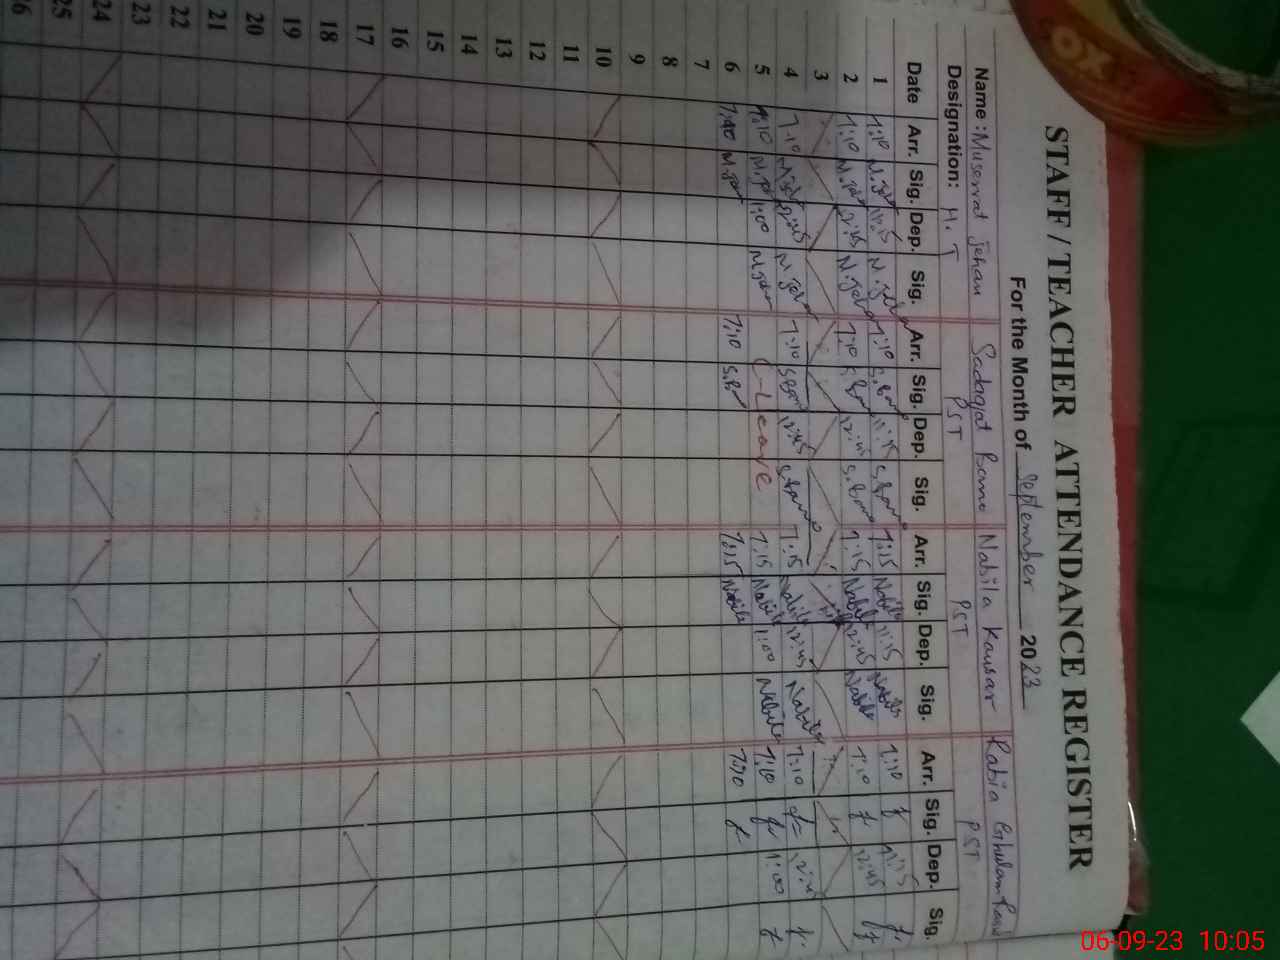 STAFF / TEACHER ATTENDANCE REGISTER
For the Month of September 2023
Name : Muserrat Jehan Sadaqat Bano Nabila Kausar Rabia Ghulam
Designation: H.T PST PST PST
Date Arr. Sig. Dep. Sig. Arr. Sig. Dep. Sig. Arr. Sig. Dep. Sig. Arr. Sig. Dep. Sig.
1 7:10 11:15 7:10 S.Bano 11:15 S.Bano 7:15 Nabila 11:15 Nabila 7:10 11:15
2 7:10 12:45 7:10 S.Bano 12:45 S.Bano 7:15 Nabila 12:45 Nabila 7:10 12:45
3
4 7:10 12:45 7:10 S.Bano 12:45 S.Bano 7:15 Nabila 12:45 Nabila 7:10 12:45
5 7:10 1:00 Leave 7:15 Nabila 1:00 Nabila 7:10 1:00
6 7:10 7:10 7:15 Nabila 7:10
7
8
9
10
11
12
13
14
15
16
17
18
19
20
21
22
23
24
25
26
OX
06-09-23 10:05